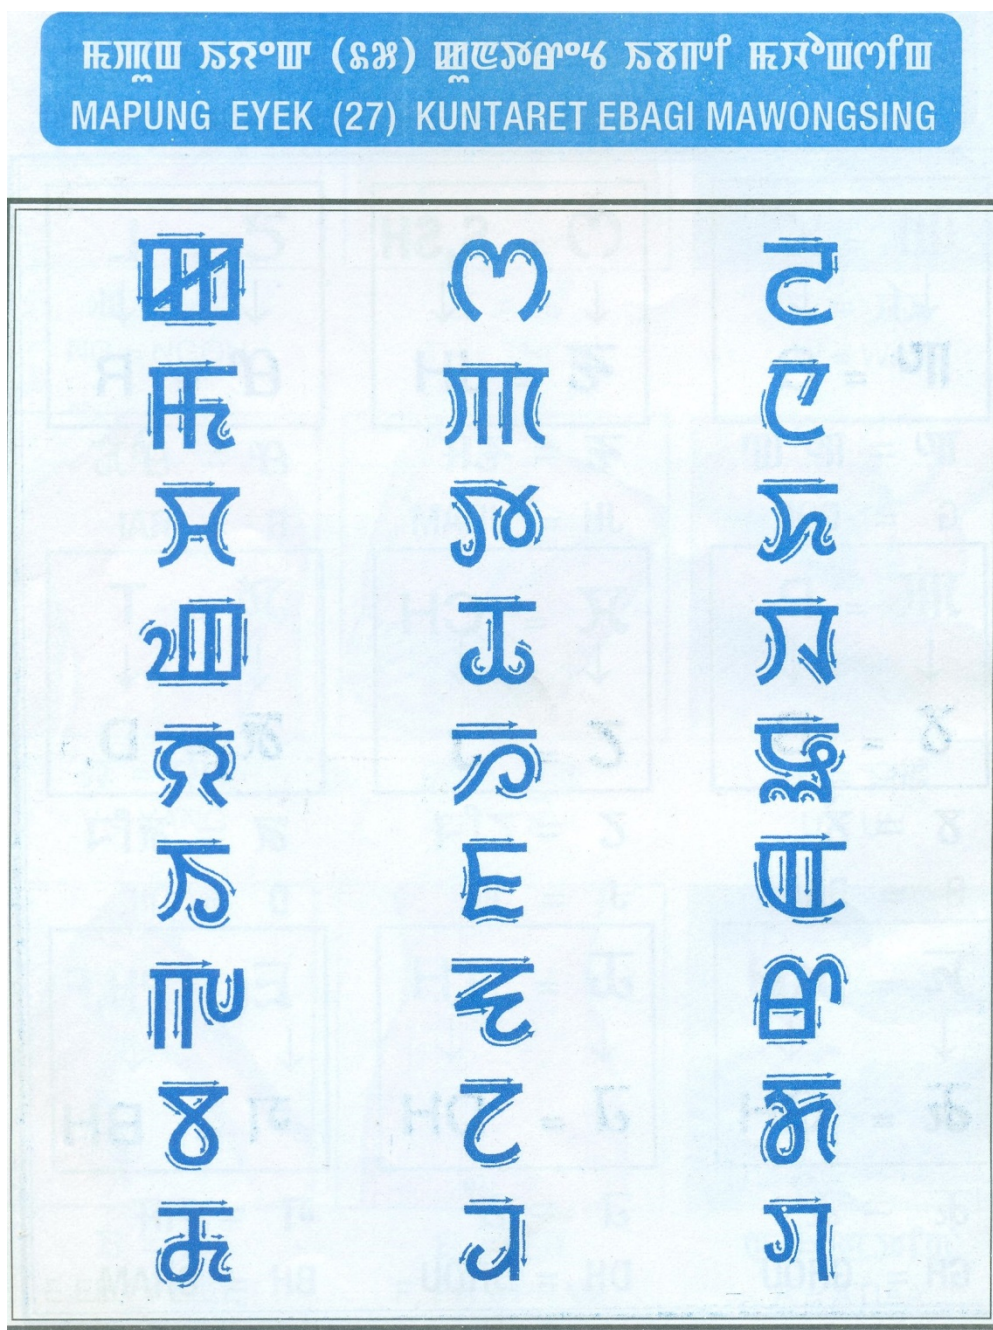 ꯃꯄꯨꯡ ꯏꯌꯦꯛ (꯲꯷) ꯀꯨꯟꯇꯔꯦꯠ ꯏꯕꯒꯤ ꯃꯋꯣꯡꯁꯤꯡ
MAPUNG EYEK (27) KUNTARET EBAGI MAWONGSING
ꯀ ꯁ ꯂ
ꯃ ꯄ ꯅ
ꯆ ꯇ ꯈ
ꯉ ꯊ ꯋ
ꯌ ꯍ ꯎ
ꯏ ꯐ ꯑ
ꯒ ꯓ ꯔ
ꯕ ꯖ ꯗ
ꯘ ꯙ ꯚ